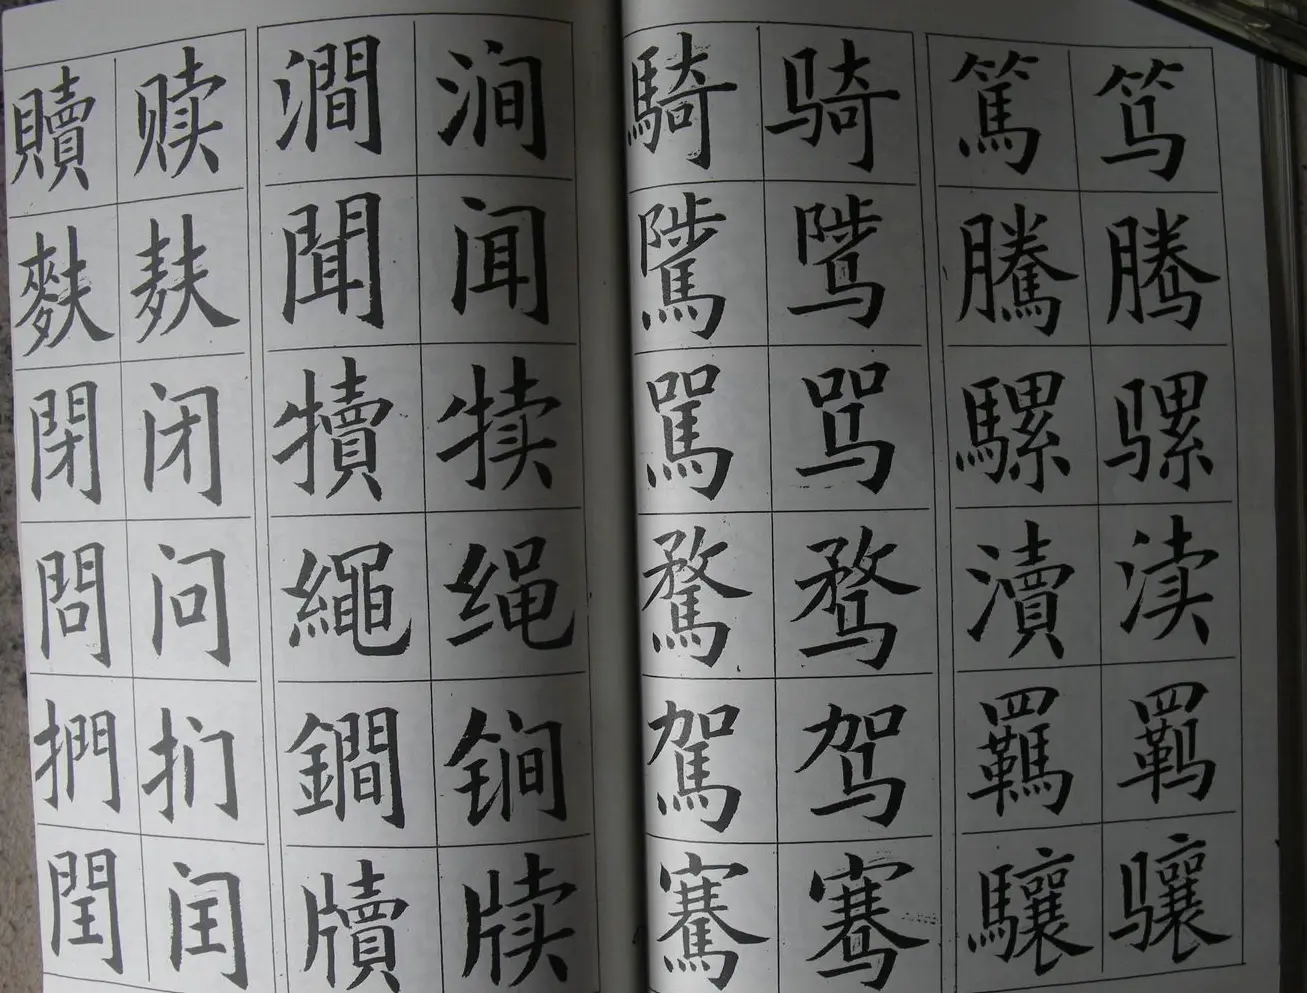 贖 赎 澗 涧 騎 骑 篤 笃
麩 麸 聞 闻 騭 骘 騰 腾
閉 闭 犢 犊 駡 骂 騾 骡
問 问 繩 绳 騖 骛 瀆 渎
捫 扪 鐧 锏 駕 驾 羈 羁
閏 闰 牘 牍 騫 骞 驤 骧